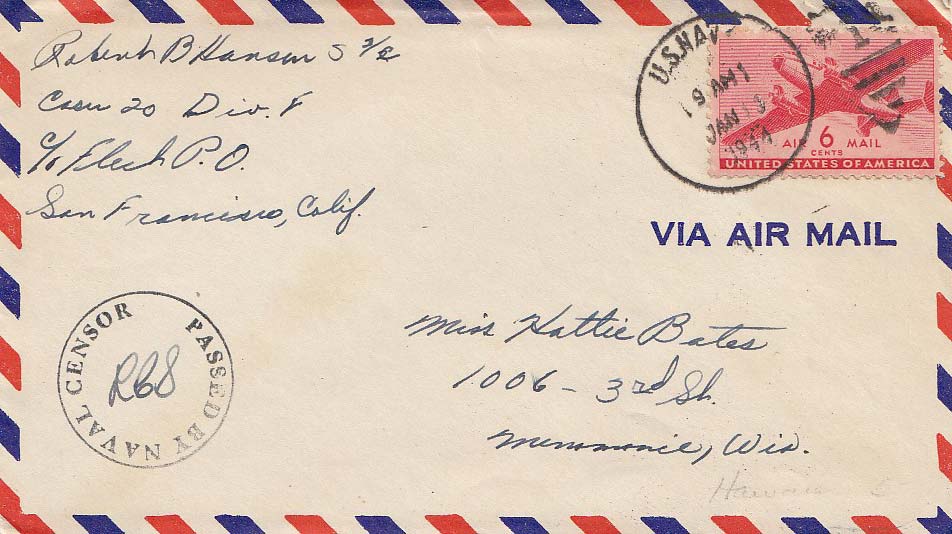 Robert B Hansen S 2/c
Casu 20 Div. F
c/o Fleet P.O.
San Francisco, Calif.
U.S. NAVY
9 AM
JAN 13
1944
AIR 6 MAIL
CENTS
UNITED STATES OF AMERICA
VIA AIR MAIL
PASSED BY NAVAL CENSOR
Miss Hattie Bates
1006 - 3rd St.
Menomonie, Wis.
Hawaii